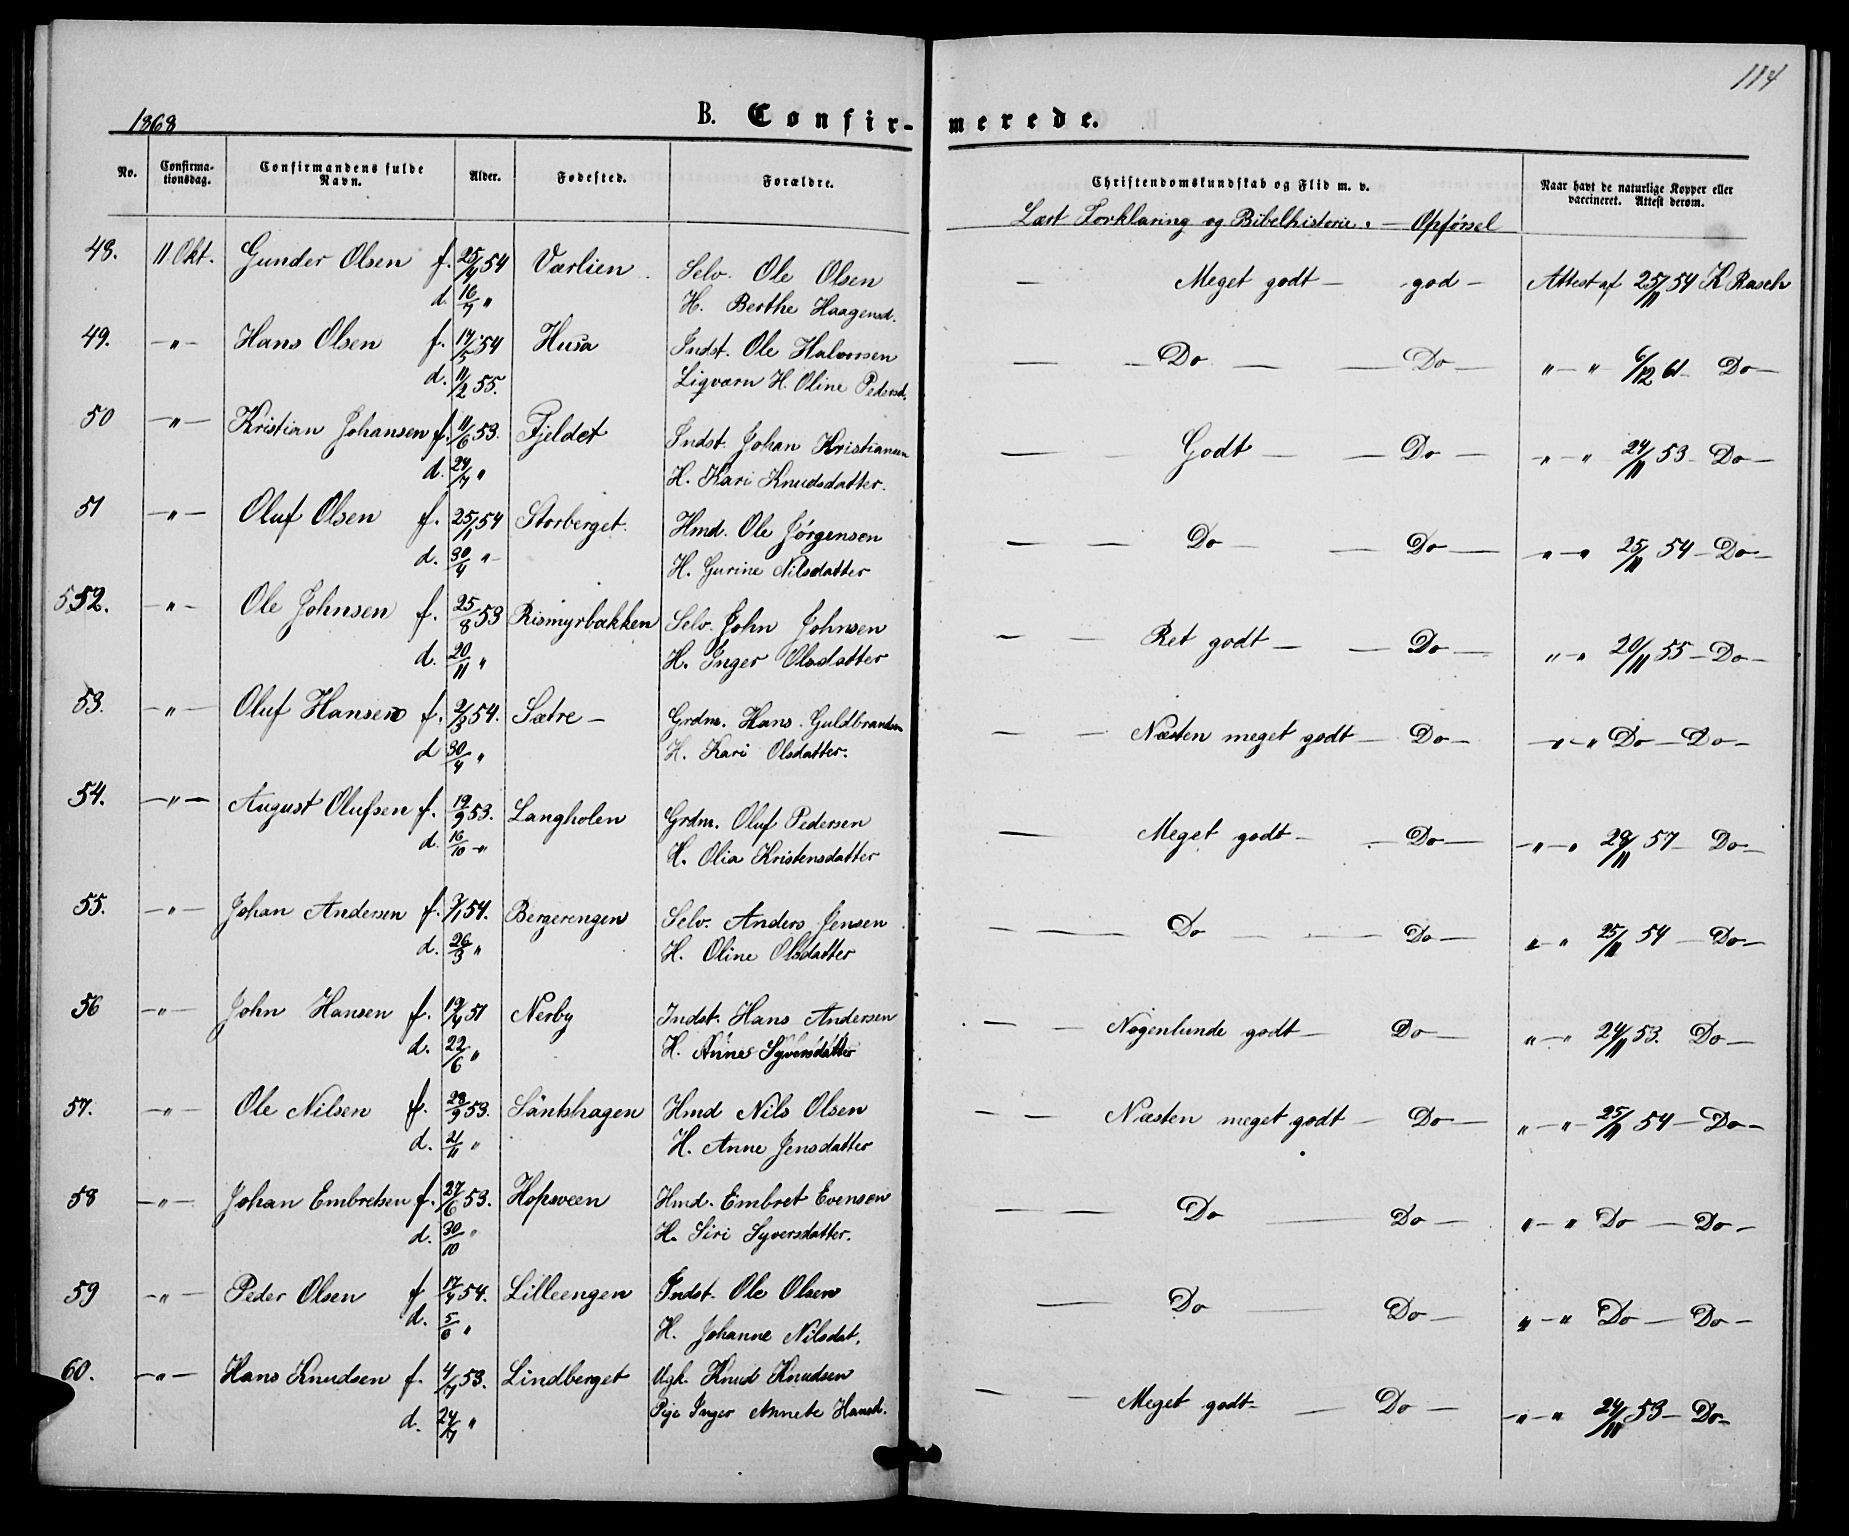 114
1868
B. Confir- merede.
No. Confirma-tionsdag. Confirmandens fulde Navn. Alder. Fødested. Forældre. Christendomskundskab og Flid m. v. Naar havt de naturlige Kopper eller vaccineret. Attest derom.
Læst Forklaring og Bibelhistorie. — Opførsel
48. 11 Okt. Gunder Olsen f. 25/4 54 Værlien. Selv. Ole Olsen — Meget godt — god — Attest af 25/11 54 K Rasch
d. 16/7 " H. Berthe Haagensd.
49. —"— Hans Olsen f. 14/5 54 Husa Indst. Ole Halvorsen — — Do — — Do — " — " 6/12 61 Do —
d. 11/2 55. Ligvarn H. Oline Pedersd.
50 —"— Kristian Johansen f. 11/6 53. Fjeldet Indst. Johan Kristiansen — — Godt — — Do — " — " 24/11 53 — Do —
d. 24/7 " H. Kari Knudsdatter.
51 —"— Oluf Olsen f. 25/1 54 Storberget. Hmd. Ole Jörgensen — — Do — — Do — " — " 25/11 54 — Do —
d. 30/4 " — H. Gurine Nilsdatter
552. —"— Ole Johnsen f. 25/8 53 Rismyrbakken Selv. John Johnsen — — Ret godt — — Do — " — " 20/11 55 — Do —
d. 20/11 " H. Inger Olsdatter
53. —"— Oluf Hansen f. 2/3 54. Sætre — Grdm. Hans Guldbrandsen — — Næsten meget godt — Do — — " — " Do — Do —
d 30/4 " H. Kari Olsdatter.
54. —"— August Olufsen f. 19/9 53. Langholen Grdm. Oluf Pedersen — Meget godt — — Do — — " — " 29/11 57 — Do —
d. 16/10 — " H. Olia Kristensdatter
55. —"— Johan Andersen f. 3/1 54. Bergerengen Selv. Anders Jensen — — Do — — Do — " — " 25/11 54 — Do —
d. 26/3 " H. Oline Olsdatter
56 —"— John Hansen f. 19/4 51 Nerby Indst. Hans Andersen — — Nogenlunde godt — Do — " — " 24/11 53. Do —
d. 22/6 " H. Anne Syversdatter
57. —"— Ole Nilsen f. 28/9 53. Säntshagen Hmd Nils Olsen — — Næsten meget godt — Do — " — " — 25/11 54 — Do —
d. 21/11 " H. Anne Jensdatter
58 —"— Johan Embretsen f. 27/6 53. Hopsveen Hmd. Embret Evensen — — Do — Do — " — " Do — Do —
d. 30/10 " H. Siri Syversdatter.
59 —"— Peder Olsen f 17/4 54. Lilleengen Indst. Ole Olsen — Do — Do — " — " Do — Do —
d. 5/6 " H. Johanne Nilsdat.
60. —"— Hans Knudsen f. 4/7 53. Lindberget Ugk. Knud Knudsen — — Meget godt — — Do — — " — " 24/11 53 — Do —
d. 24/7 " Pige Inger Annete Hansd.